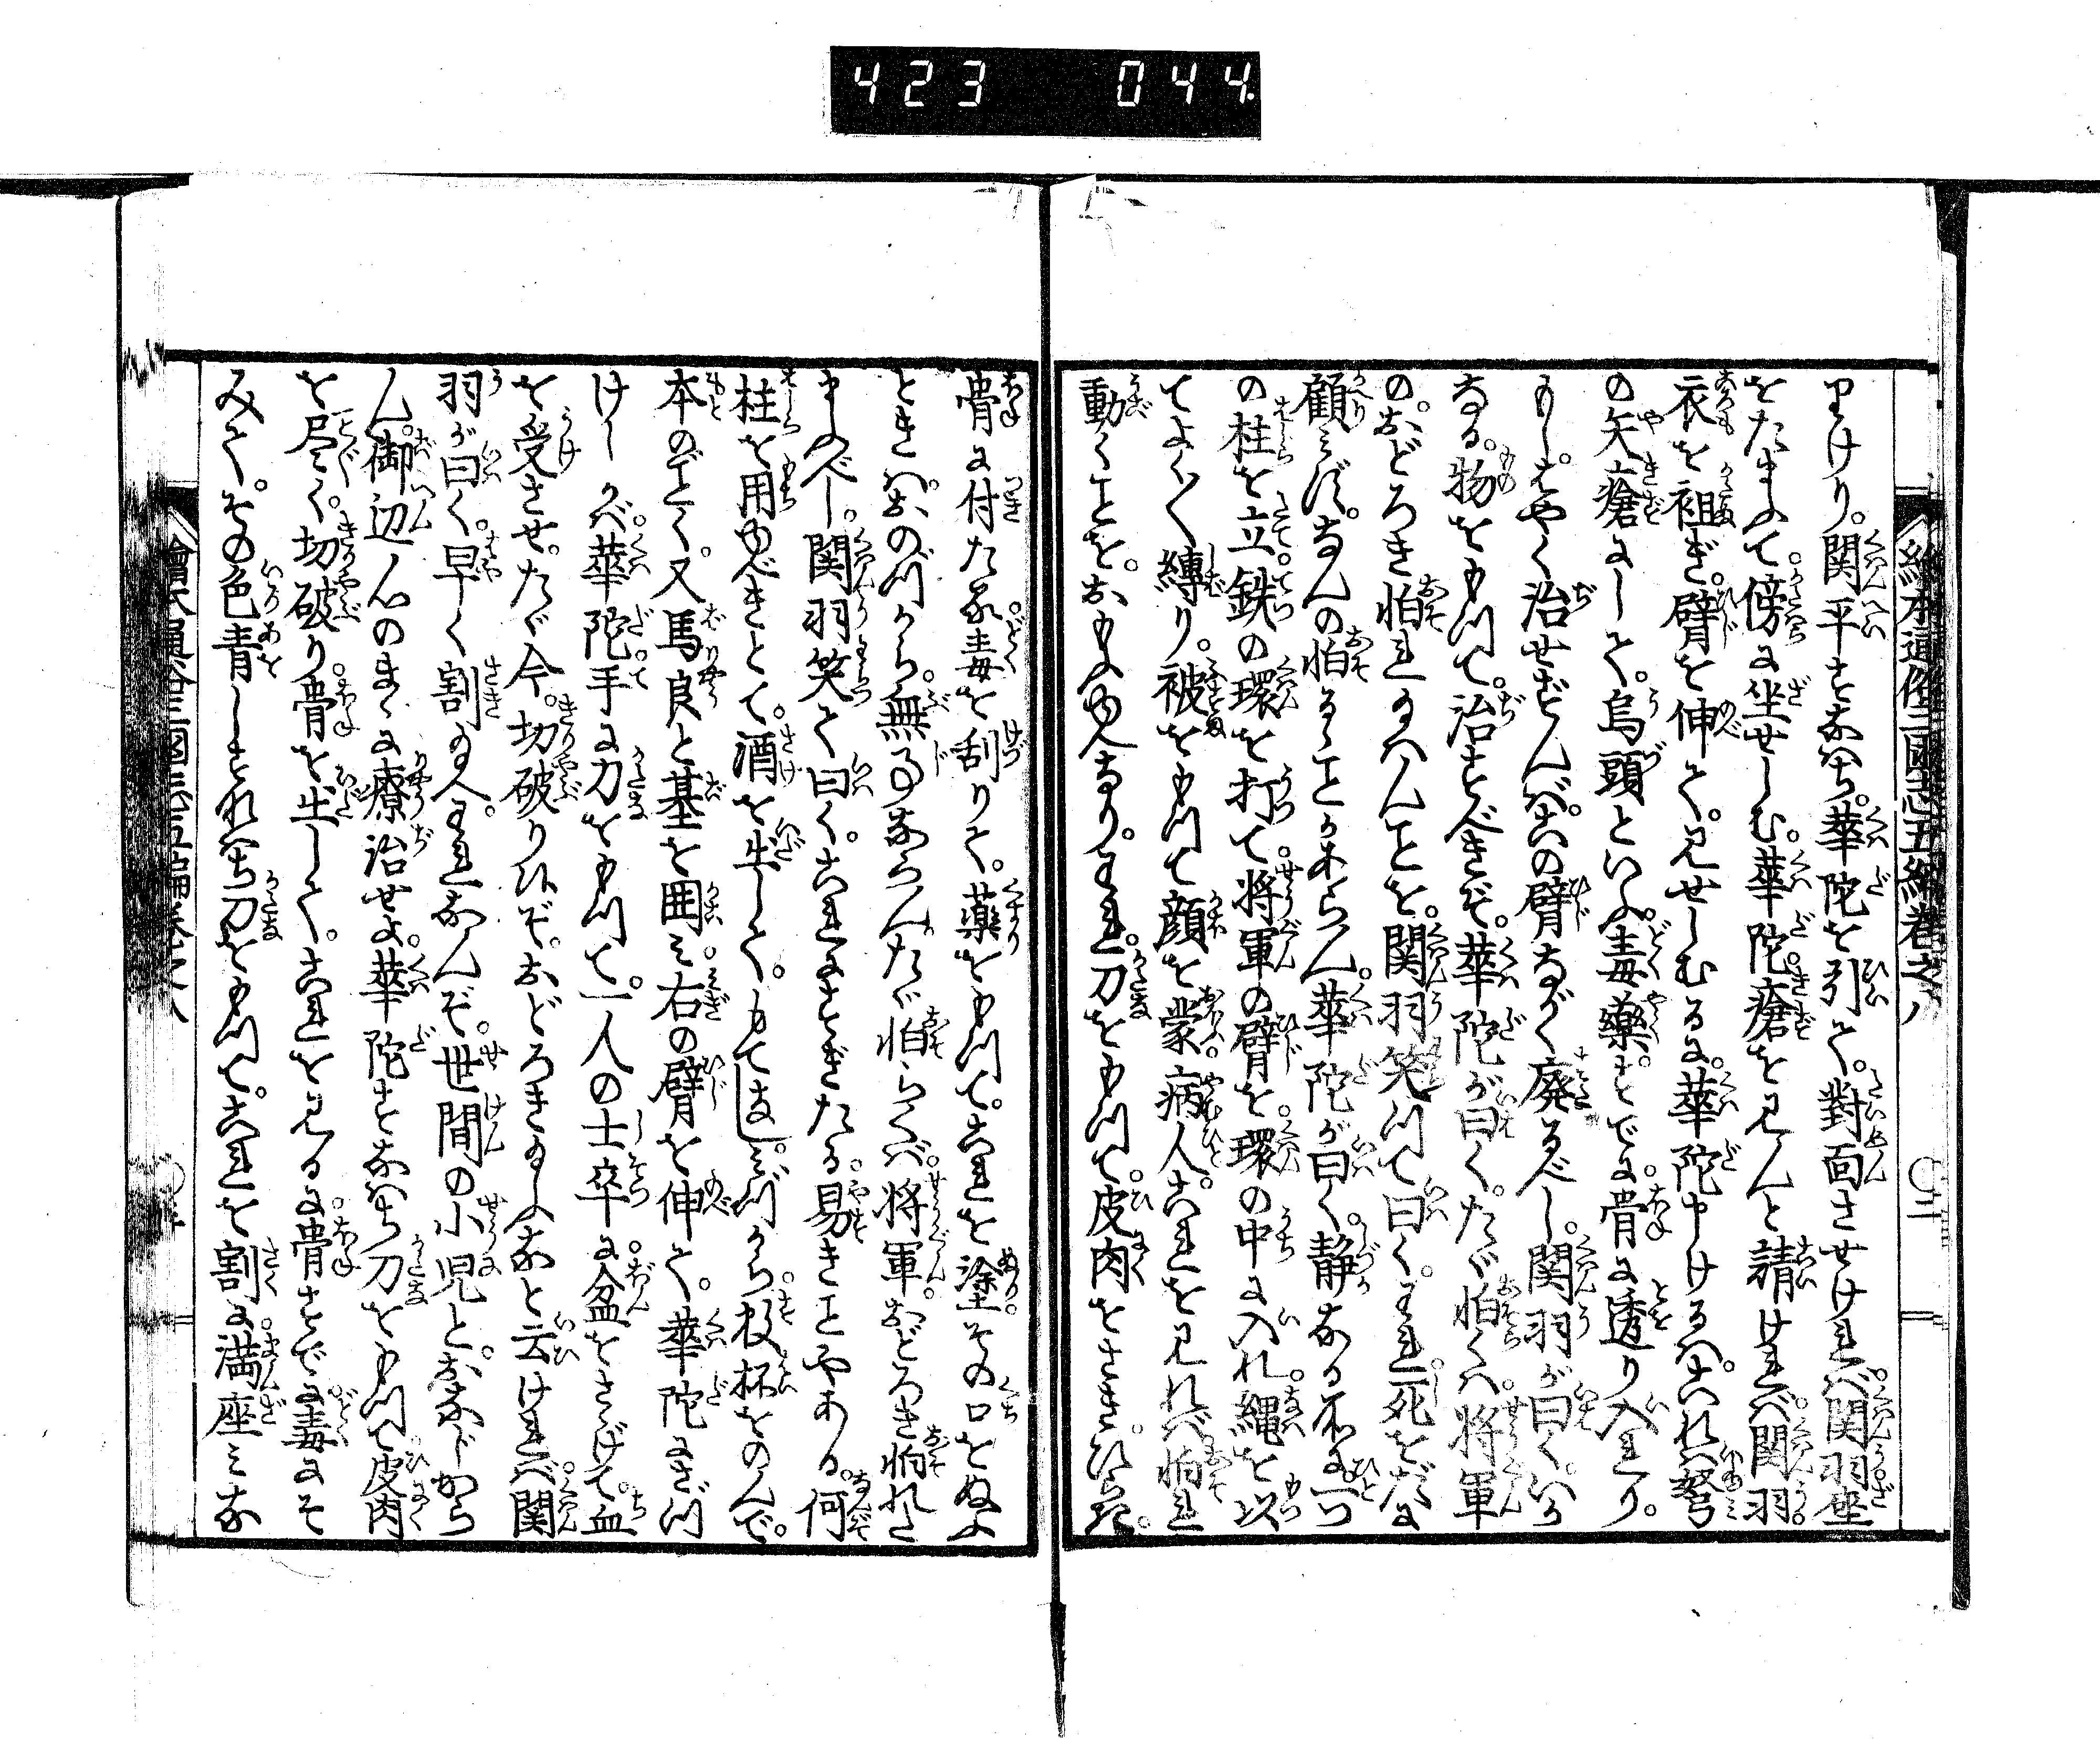 423 044
絵本通俗三國志五編巻之八 〇二
りけり。関平すなはち。華陀を引て。對面させければ。関羽座
をたまふて。傍に坐せしむ。華陀。瘡を見んと請ければ。関羽。
衣を袒ぎ。臂を伸て。見せしむるに。華陀申けるハ。これハ弩
の矢瘡にして。烏頭といふ。毒薬。すでに。骨に透り入れり。
もし。はやく治せずんば。この臂ながく廃るべし。関羽が曰く。いか
なる。物をもつて。治すべきぞ。華陀が曰く。たゞ怕くハ。将軍
の。おどろき怕れ給ハんことを。関羽笑つて曰く。われ。死をだに
顧みず。なんの怕るゝことかあらん。華陀が曰く。静なる所に一つ
の柱を立。鉄の環を打て。将軍の臂を。環の中に入れ。縄を以
てよく〱縛り。被をもつて顔を蒙。病人。これを見れバ怕れ
動くことを。おもふゆへなり。われ。刀をもつて。皮肉をさき。ひらき。
骨に付たる。毒を刮りて。薬をもつて。これを塗。その口をぬふ
ときハ。おのづから。無事ならん。たゞ怕らくバ。将軍。おどろき怕れ
ましのべし。関羽笑て曰く。これにすぎたる。易きことやある。何
柱を用ゆべきとて。酒を出して。もてなし。みづから。数杯をのんで。
本のごとく。又馬良と基を囲み。右の臂を伸て。華陀にさづ
けしかば。華陀。手に刀をもつて。一人の士卒に。盆をさゝげて。血
を受させ。たゞ今。切破り候ぞ。おどろき給ふなと云ければ。関
羽が曰く。早く割給へ。われなんぞ。世間の小児と。おなじから
ん。御辺心のまゝに療治せよ。華陀すなはち刀をもつて。皮肉
を尽く。切破り。骨を出して。これを見るに。骨すでに。毒にそ
みて。その色青し。すなはち刀をもつて。これを割に。満座みな
繪本通俗三國志五編巻之八